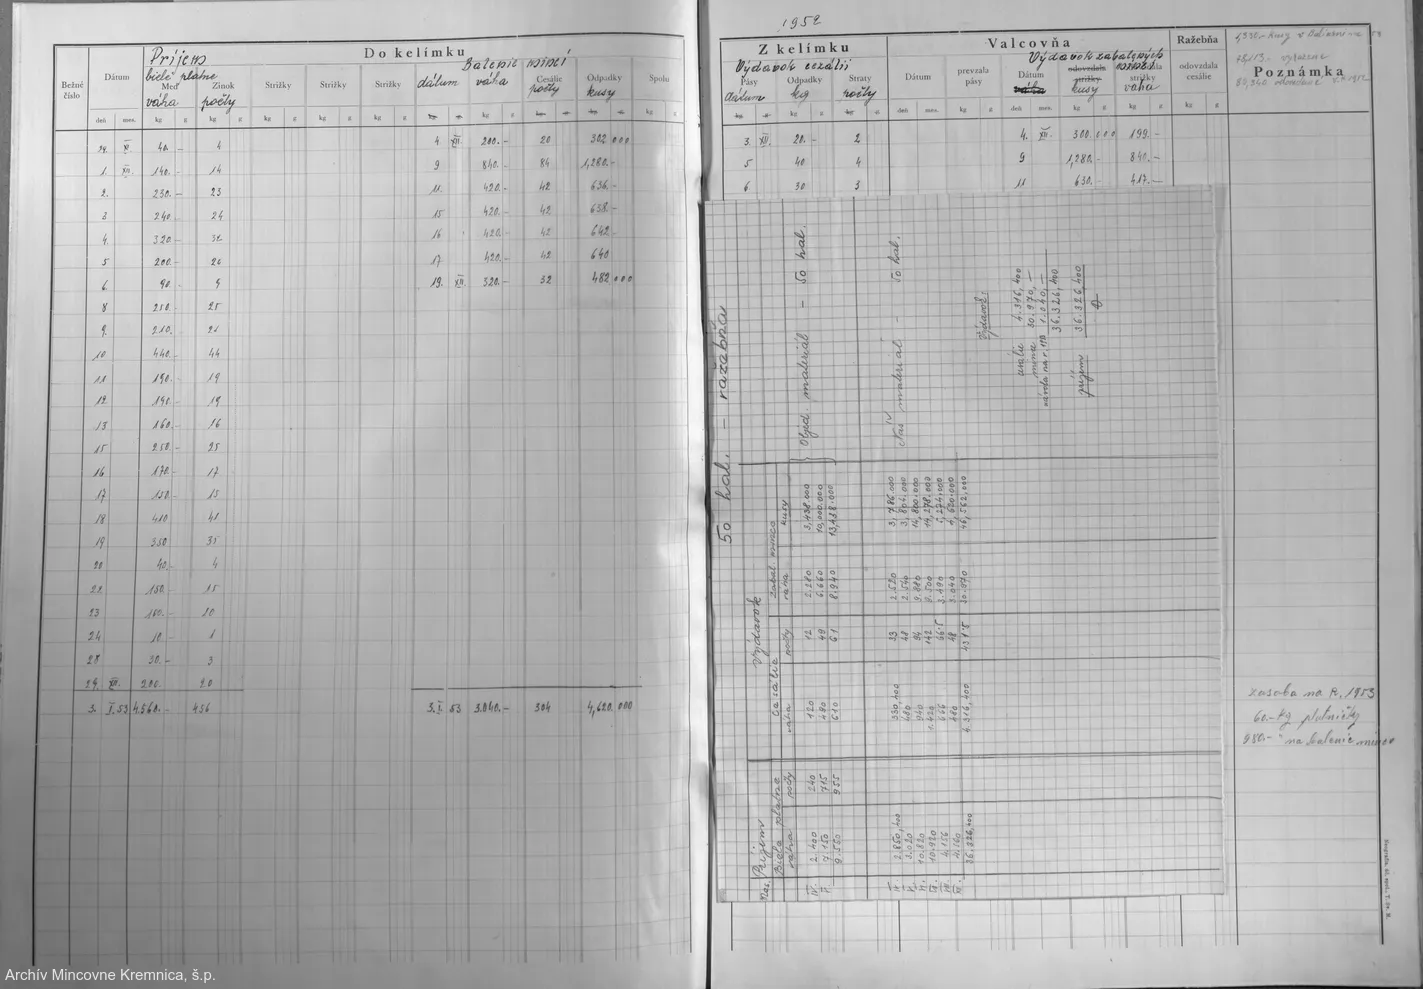 1952
Príjem
Do kelímku
Bežné číslo
Dátum
biele platne
Meď
váha
Zinok
počty
Strižky
Strižky
Strižky
Balenie mincí
dátum
váha
Cesálie
počty
Odpadky
kusy
Spolu
deň mes. kg g kg g kg g kg g kg g kg g kg g
24. XI. 40.- 4
1. XII. 140.- 14
2. 230.- 23
3 240.- 24
4. 320.- 32
5 200.- 20
6 90.- 9
8 250.- 25
9. 210.- 21
10 440.- 44
11 190.- 19
12 190.- 19
13 160.- 16
15 250.- 25
16 170.- 17
17 150.- 15
18 410 41
19 350 35
20 40.- 4
22 150.- 15
23 100.- 10
24 10.- 1
28 30.- 3
29. XII. 200.- 20
3. I. 53 4.560.- 456
4. XII. 200.- 20 302 000
9 840.- 84 1,280.-
11. 420.- 42 636.-
15 420.- 42 638.-
16 420.- 42 642.-
17 420.- 42 640
19. XII. 320.- 32 482 000
3. I. 53 3.040.- 304 4,620.000
Z kelímku
Výdavok cezálii
Pásy
dátum
Odpadky
kg
Straty
počty
Valcovňa
Dátum
prevzala pásy
Výdavok zabalených mincí
Dátum
odovzdala strižky
kusy
strižky
váha
Ražebňa
odovzdala cesálie
Poznámka
3. XII. 20.- 2
5 40. 4
6 30 3
4. XII. 300.000 199.-
9 1,280.- 840.-
11 630.- 417.-
50 hal. - razebňa
Mes.
Príjem
Biele platne
váha
počty
Výdavok
Cesálie
váha
počty
Zabal. mince
váha
kusy
IV. 2.400 240 120 12 2.280 3,438.000
V. 7.150 715 490 49 6.660 10,000.000
9.550 955 610 61 8.940 13,438.000
Objed. materiál - 50 hal.
Náš materiál - 50 hal.
2.850,400 330,400 33 2.520 3,786.000
3.020 480 48 2.540 3,804.000
10.820 940 94 9.880 14,800.000
10.920 1.420 142 9.500 14,278.000
4.156 666 66.5 3.490 5,274.000
4.560 480 48 3.040 4,620.000
36.326,400 4.316,400 431.5 30.970 46,562.000
Výdavok:
cesálie 4.316,400
mince 30.970,-
1.040,-
36.326,400
príjem 36.326,400
zasoba na R. 1953
60.- kg platničky
980.- " na balenie mincí
Archív Mincovne Kremnica, š.p.